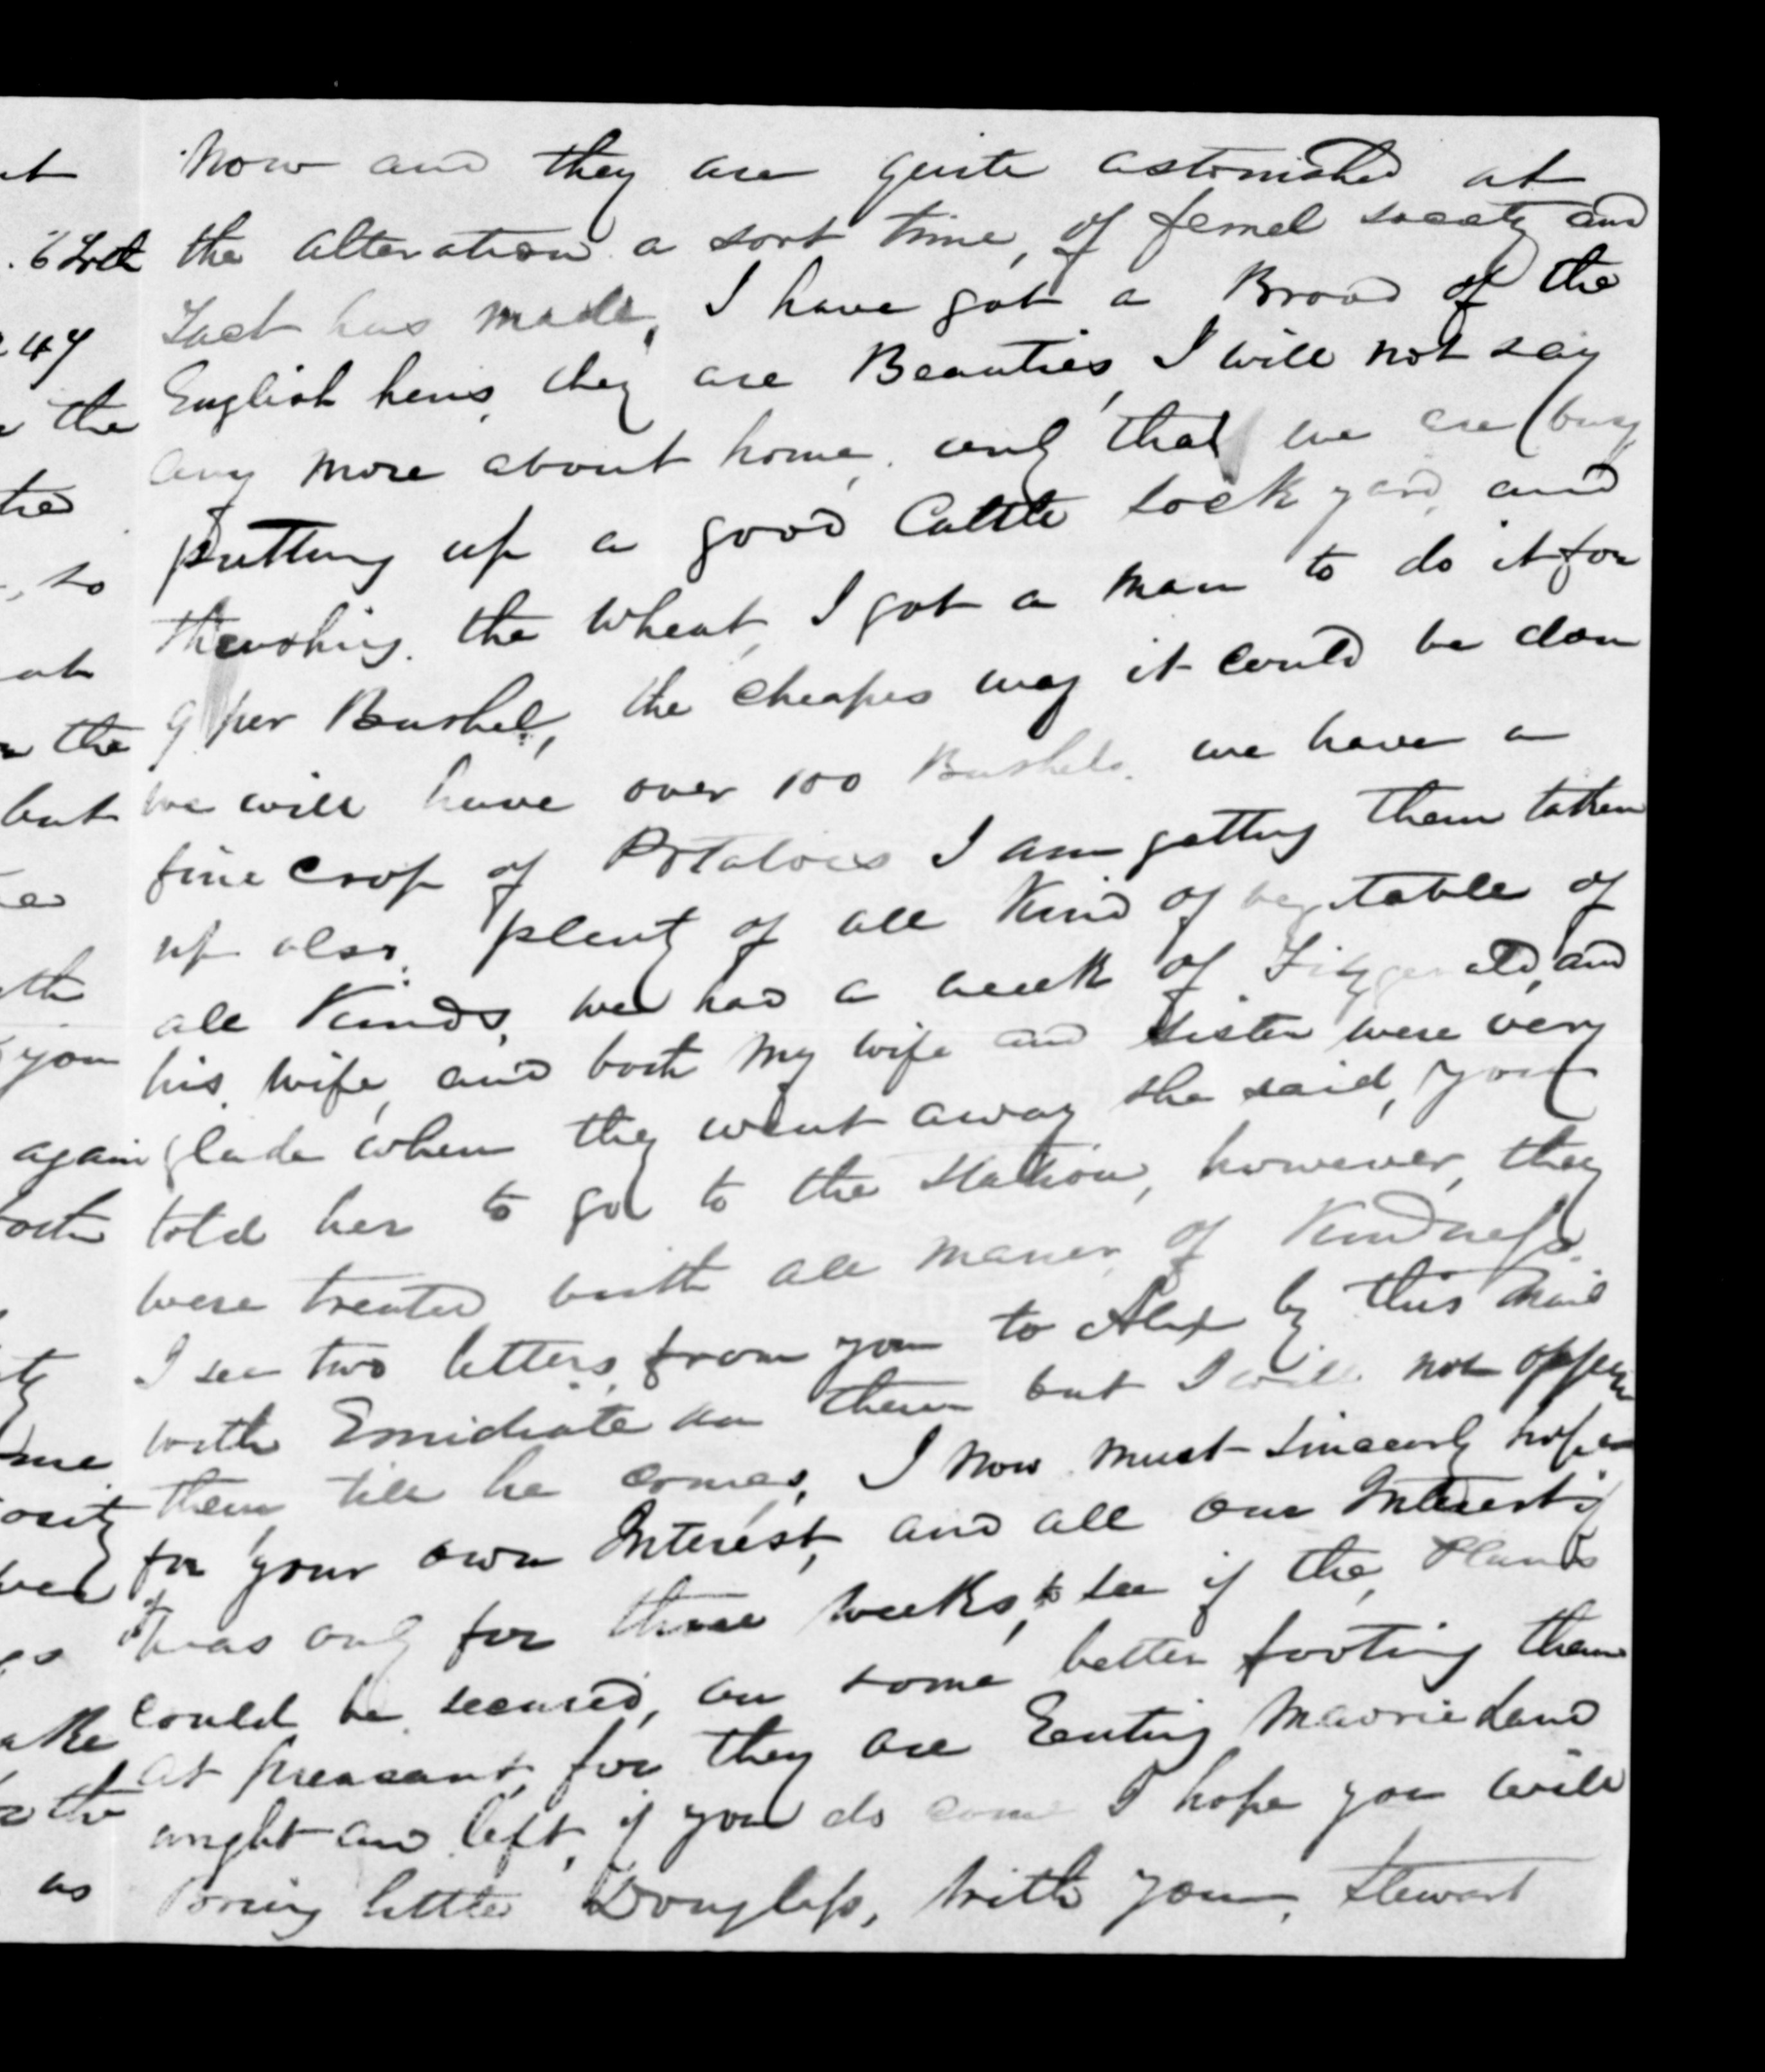 Now and they are quite astonished at
the alteration a sort time, of femel socaty and
Tact has made, I have got a Brood of the
English hens, they are Beauties, I will not say
any more about home, only that we are busy
putting up a good Cattle sock yard, and
thrushing the wheat, I got a man to do it for
9 per Bushel, the cheapes way it could be don
we will have over 100 Bushels. we have a
fine crop of Potatoes I am getting them taken
up also. plenty of all Kind of vegetable of
all Kinds, we had a week of Fitzgerald, and
his wife, and both my wife and sister were very
glade when they went away she said, you
told her to go to the Station, however, they
were treated with all maner of Kindness.
I see two letters from you to Alex by this mail
with Emidiate on them but I will not oppen
them till he comes, I now must sincearly hope
for your own Interest, and all our Interest if
it was only for three weeks, to see if the, Plains
could be secured, on some better footing them
at preasant, for they are Eenting Maorie Land
wright and left, if you do come I hope you will
bring little Douglass, with you, Stewart
6
47
the
so
the
but
you
again
as